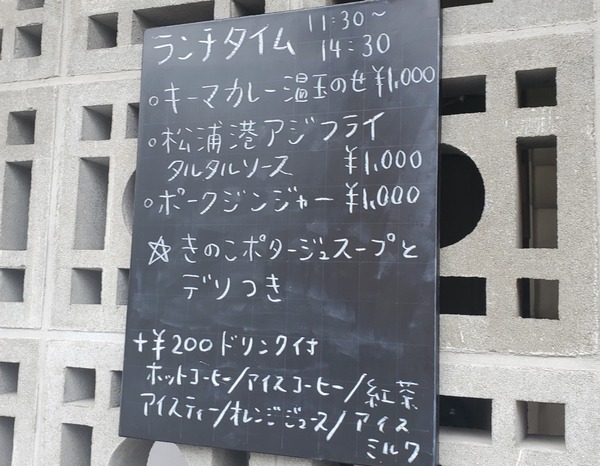 ランチタイム 11:30～
14:30
○キーマカレー温玉のせ ¥1,000
○松浦港アジフライ
タルタルソース ¥1,000
○ポークジンジャー ¥1,000
☆きのこポタージュスープと
デリつき
+¥200 ドリンク付
ホットコーヒー/アイスコーヒー/紅茶
アイスティー/オレンジジュース/アイス
ミルク